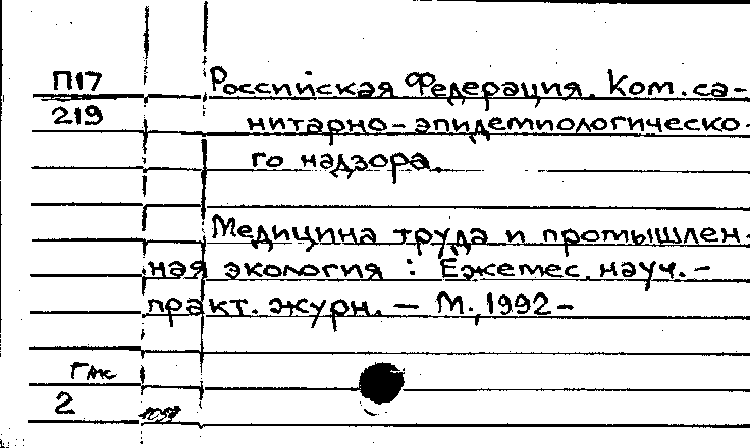 П17
219
Российская Федерация. Ком. са-
нитарно-эпидемиологическо-
го надзора.
Медицина труда и промышлен-
ная экология : Ежемес. науч.-
практ. журн. — М., 1992-
2